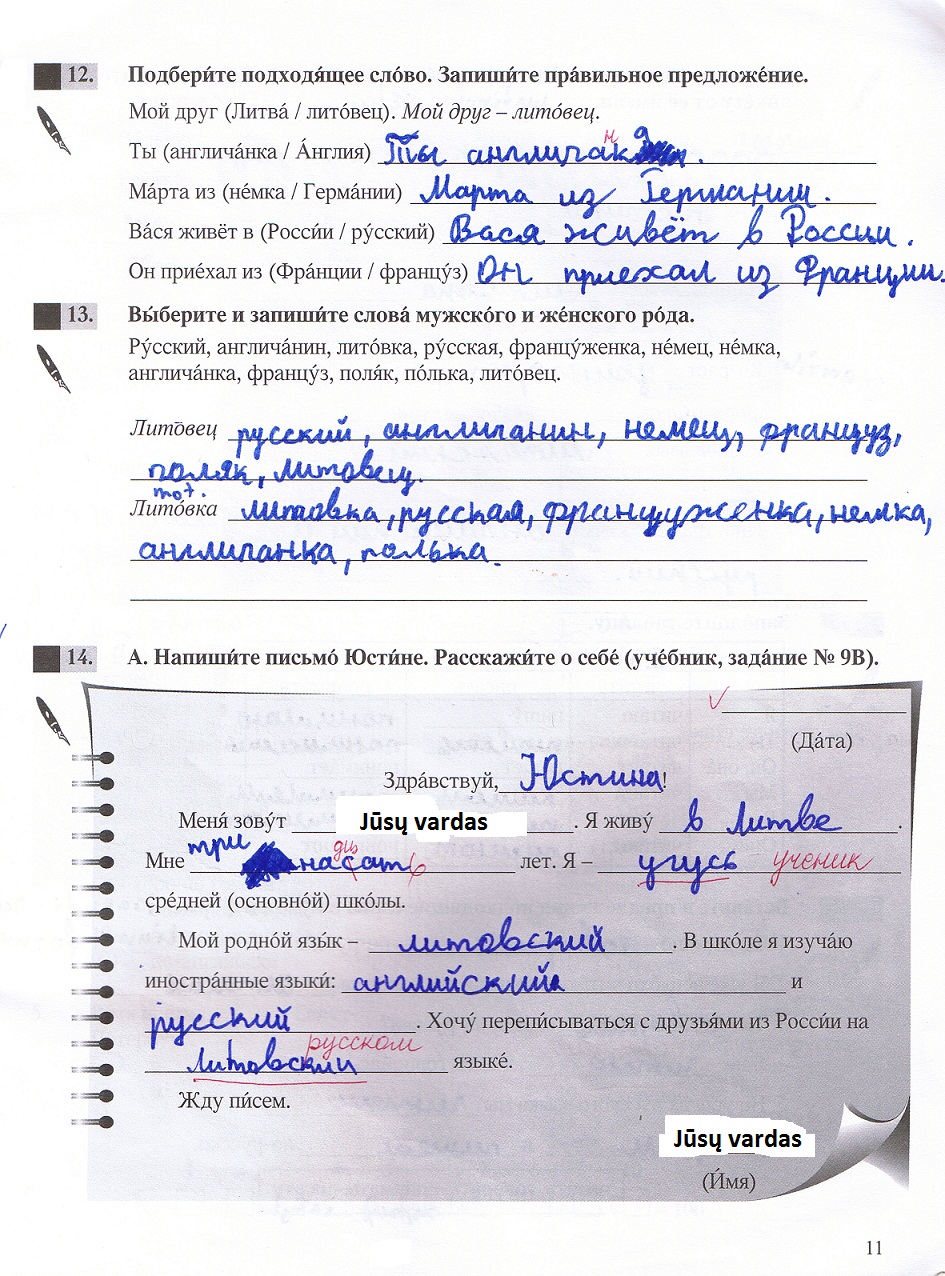 12. Подбери́те подходя́щее сло́во. Запиши́те пра́вильное предложе́ние.
Мой друг (Литва́ / лито́вец). Мой друг – лито́вец.
Ты (англича́нка / А́нглия) Ты англичак
н
Ма́рта из (не́мка / Герма́нии) Марта из Германии.
Ва́ся живёт в (Росси́и / ру́сский) Вася живёт в России.
Он прие́хал из (Фра́нции / францу́з) Он приехал из Франции.
13. Вы́берите и запиши́те слова́ мужско́го и же́нского ро́да.
Ру́сский, англича́нин, лито́вка, ру́сская, францу́женка, не́мец, не́мка,
англича́нка, францу́з, поля́к, по́лька, лито́вец.
Лито́вец русский, англичанин, немец, француз,
поляк, литовец.
мот.
Лито́вка литовка, русская, француженка, немка,
англичанка, полька.
14. А. Напиши́те письмо́ Юсти́не. Расскажи́те о себе́ (уче́бник, зада́ние № 9В).
(Да́та)
Здра́вствуй, Юстина!
Меня́ зову́т Jūsų vardas. Я живу́ в Литве.
три дц
Мне насать лет. Я – угусь ученик
сре́дней (основно́й) шко́лы.
Мой родно́й язы́к – литовский. В шко́ле я изуча́ю
иностра́нные языки́: английский и
русский. Хочу́ перепи́сываться с друзья́ми из Росси́и на
русском
литовский языке́.
Жду пи́сем.
Jūsų vardas
(И́мя)
11